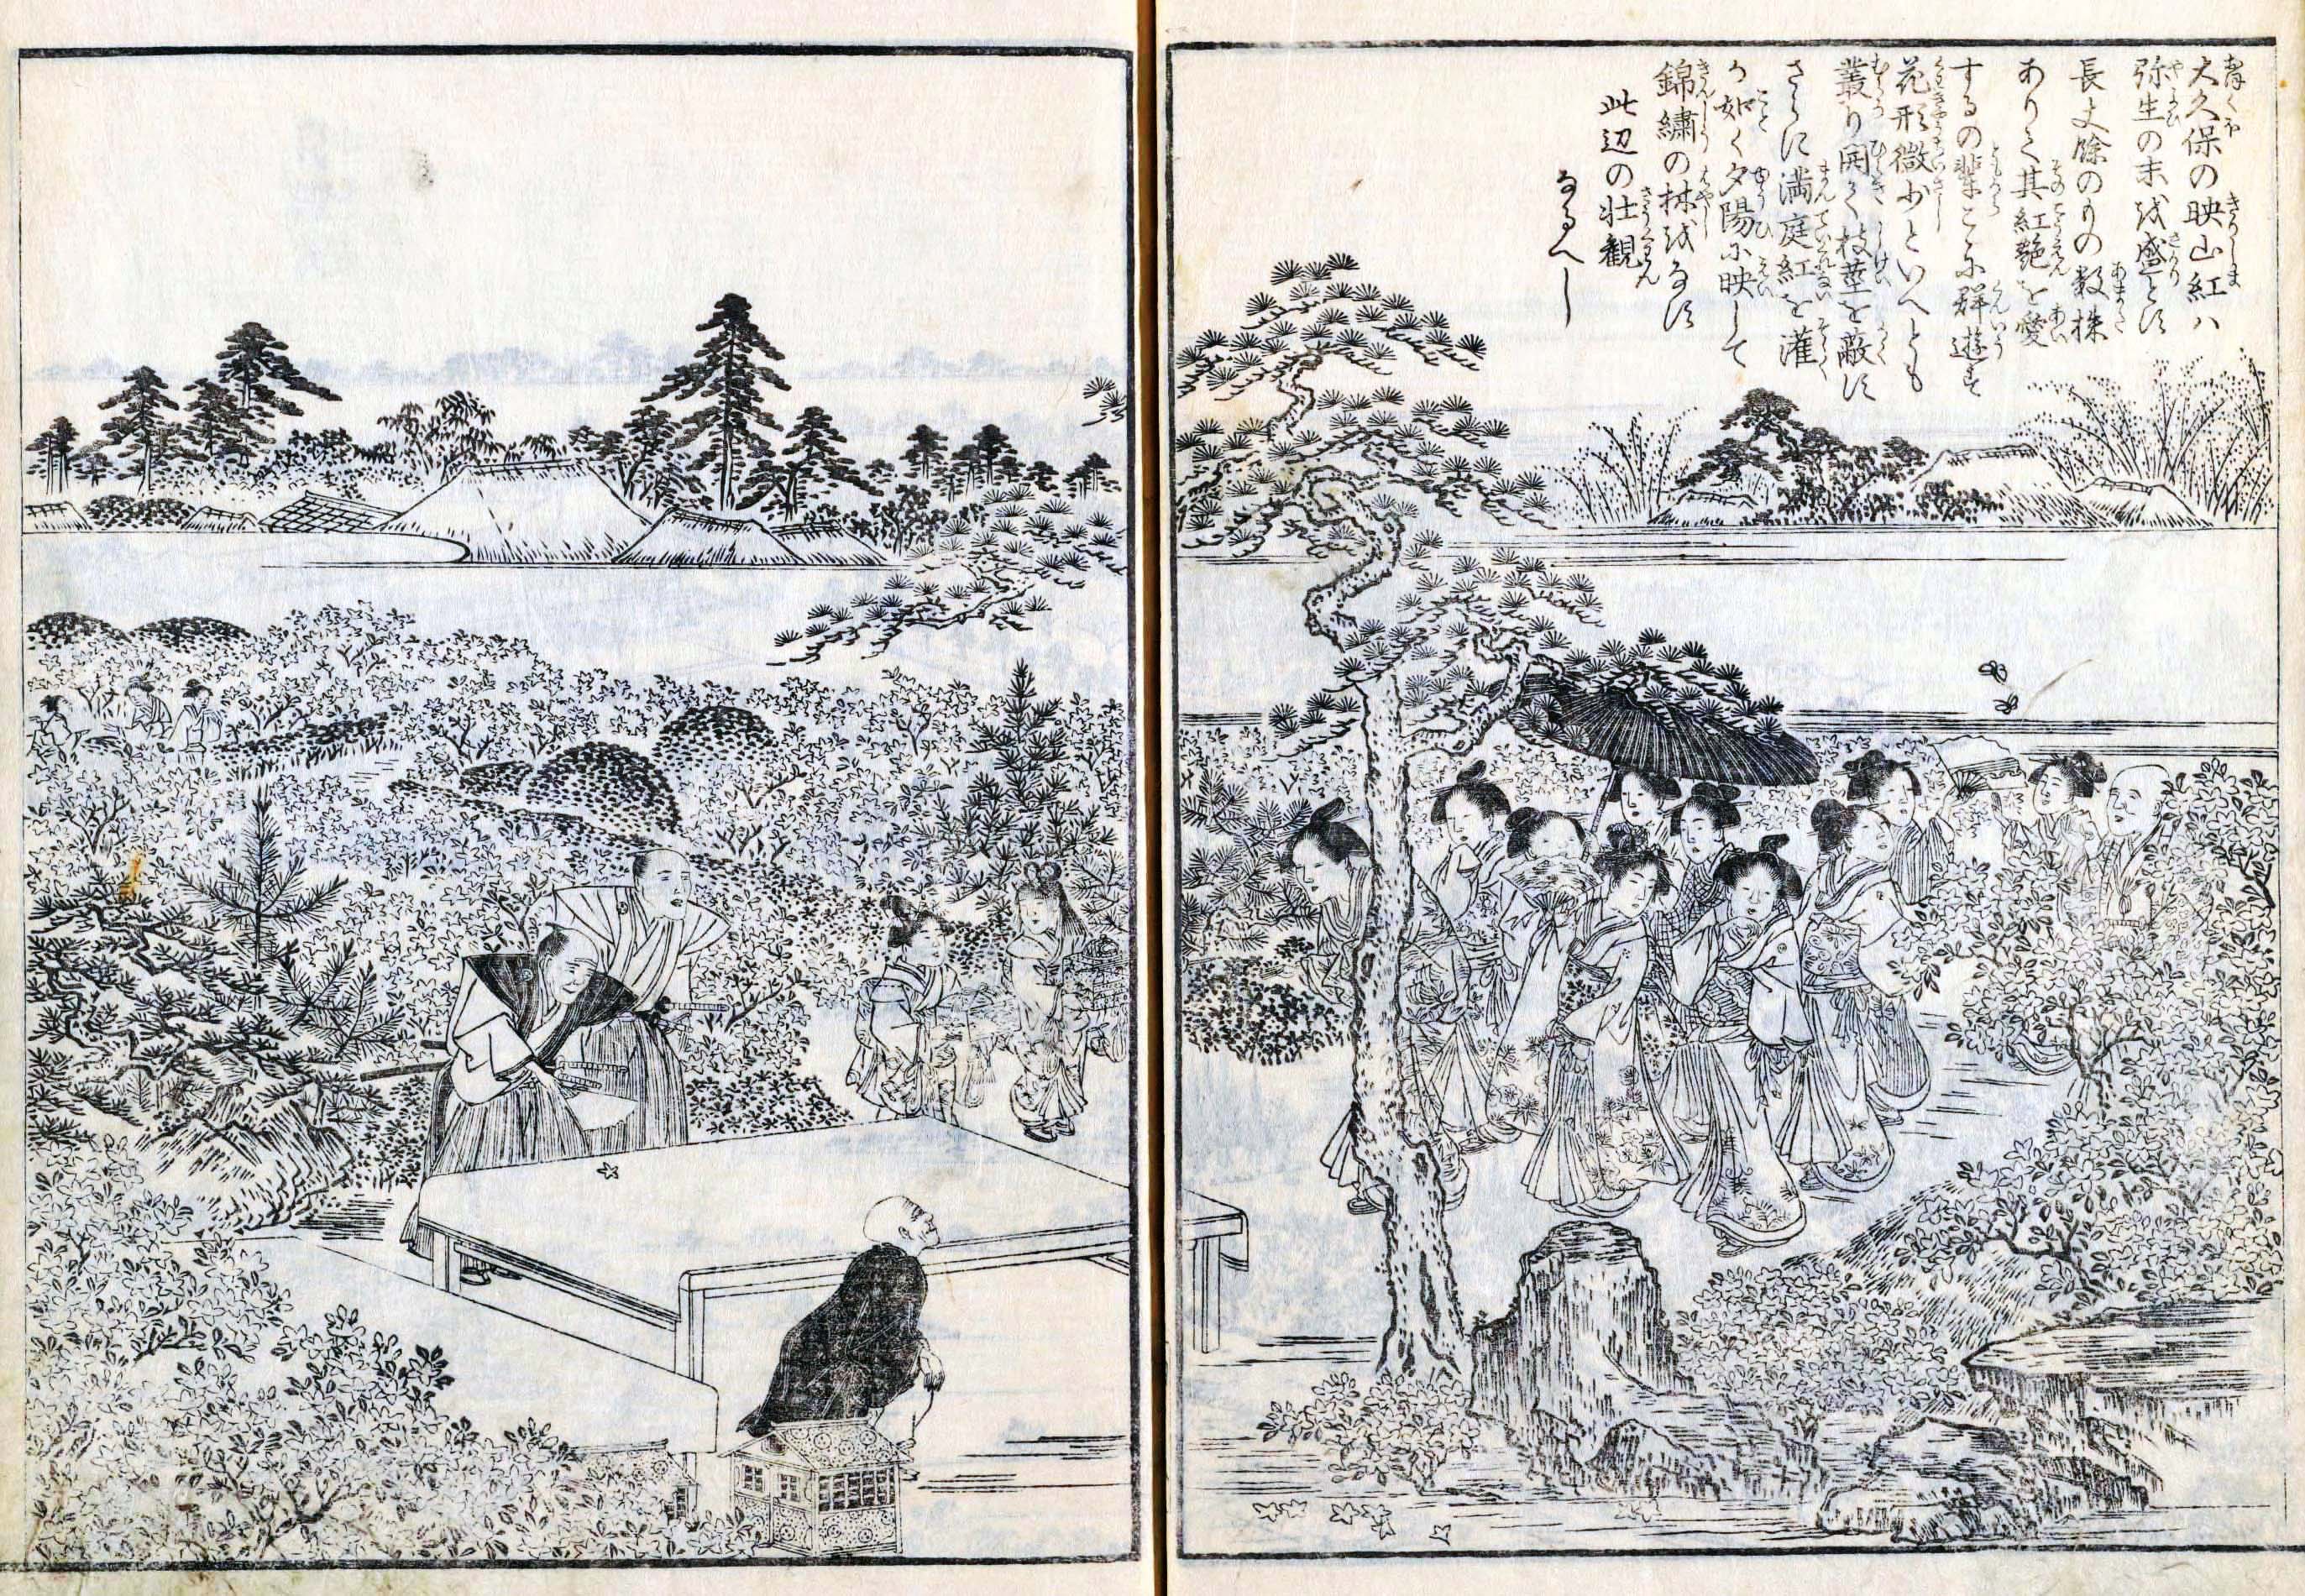 大久保の映山紅ハ
弥生の末を盛とす
長丈餘のもの数株
ありて其紅艶を愛
するの輩こゝに群遊す
花形微少といへとも
叢り開て枝茎を蔽す
さらに満庭紅を灌
か如く夕陽に映して
錦繍の林をなす
此辺の壮観
なるへし